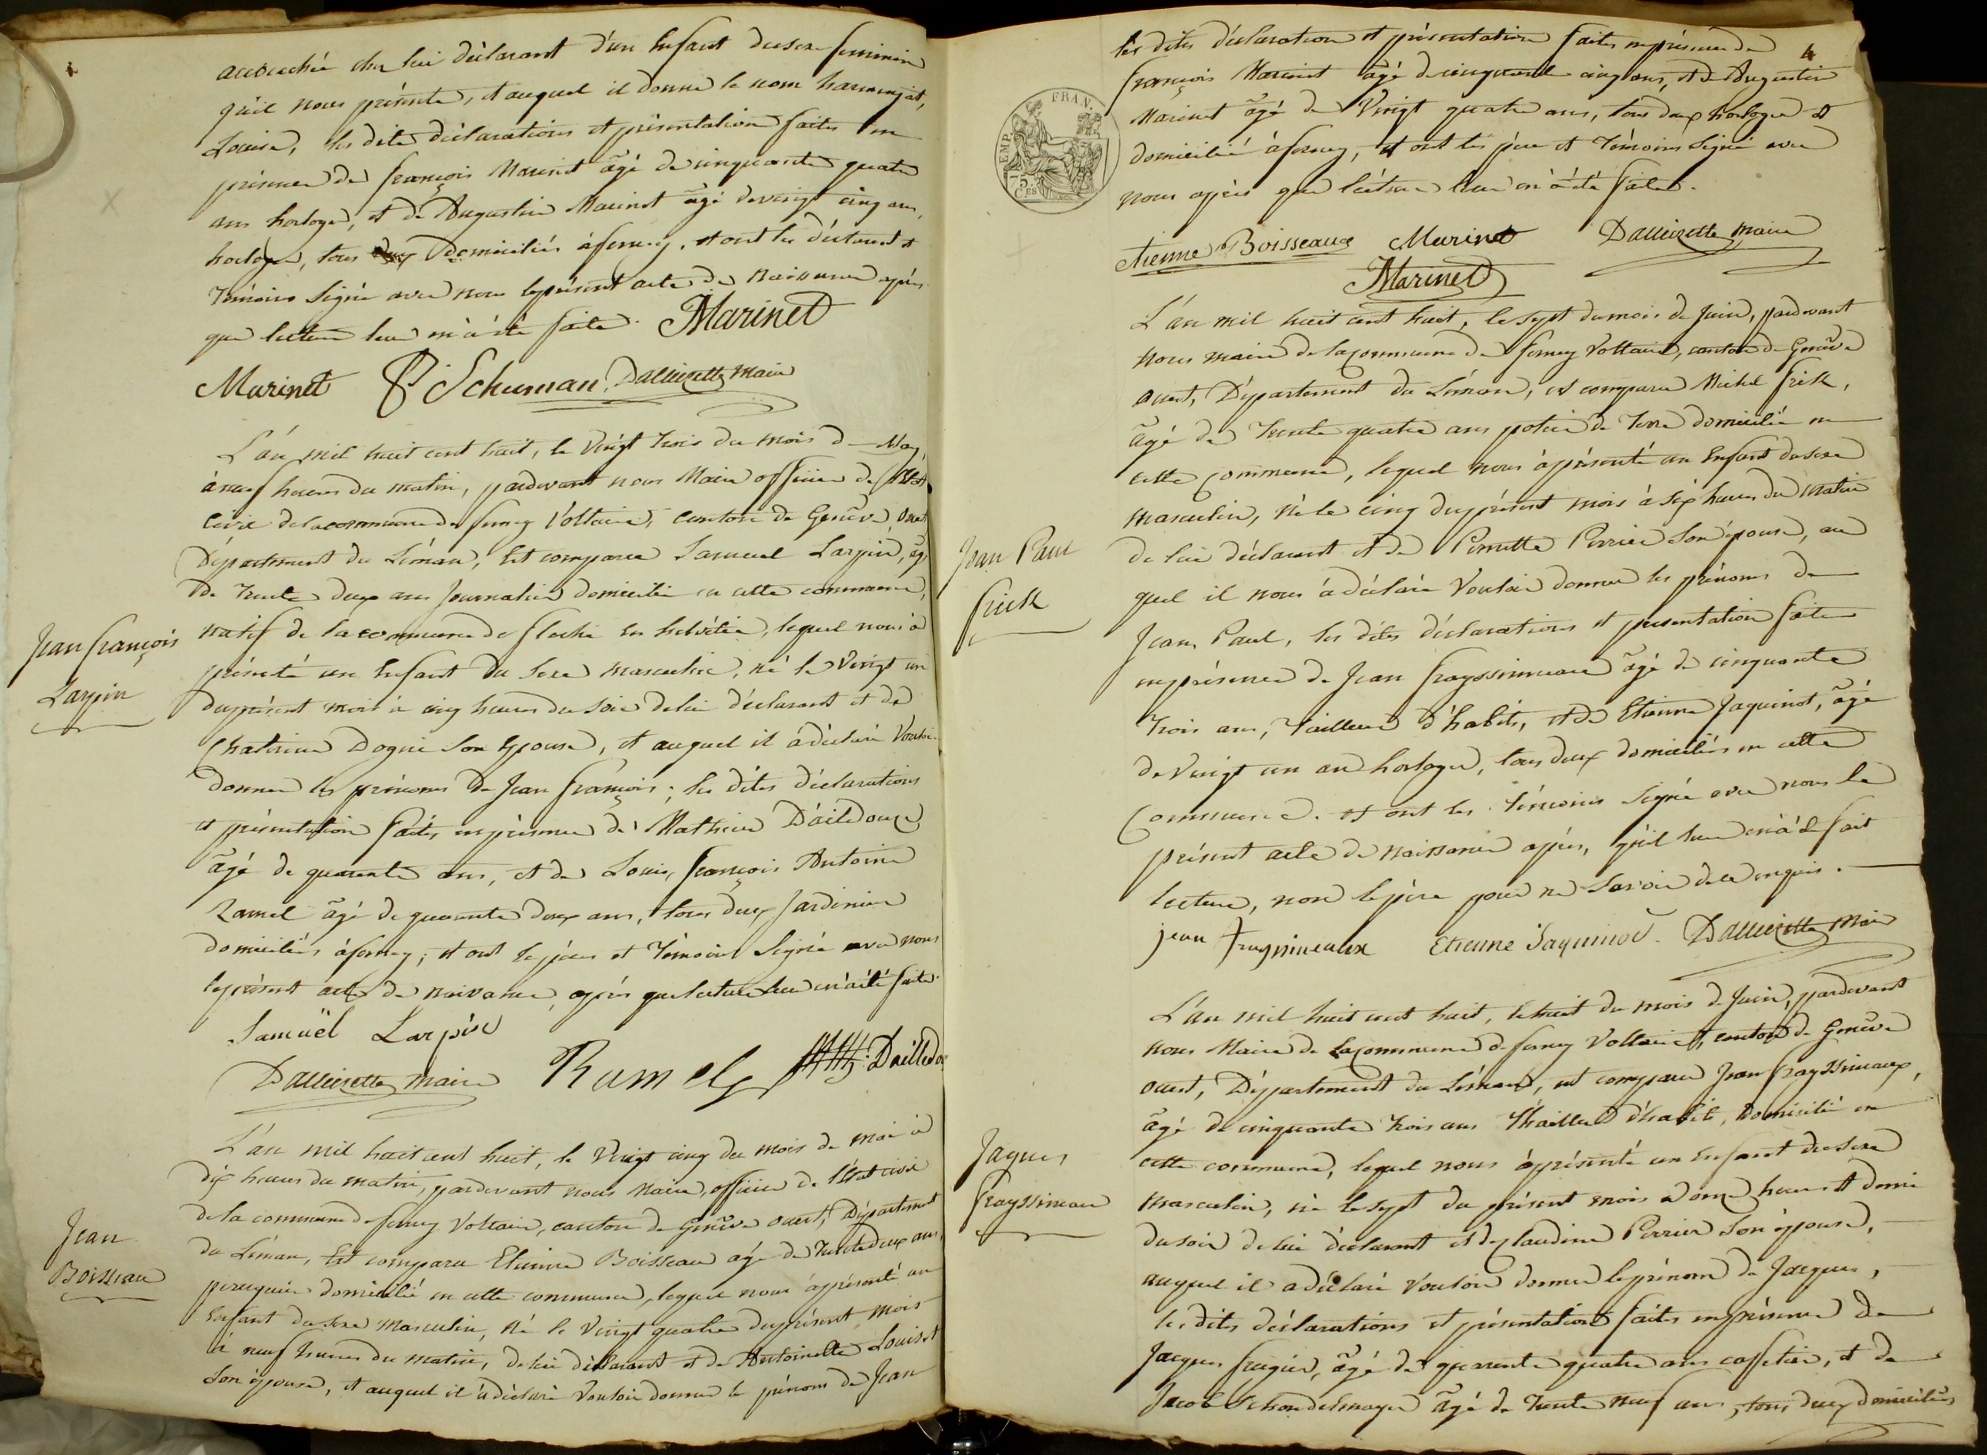 accouchée chez lui déclarant d'un Enfant du sexe feminin
qu'il nous présente, et auquel il donne le nom
Louise, les dite déclarations et présentation faites en
présence de françois Marinet âgé de cinquante quatre
ans horloger, et de Augustin Marinet âgé de vingt cinq ans,
horloger, tous deux domiciliés à ferney, et ont les déclarant et
témoins Signé avec nous le présent acte de Naissance après
que lecture leur en à été faite. Marinet
Marinet Schuman Dallizette maire
L'an mil huit cent huit, le vingt trois du mois de May,
à neuf heures du matin, pardevant nous Maire officier de l'Etat
Civil de la commune de ferney Voltaire, canton de Genêve Ouest
Département du Léman, Est comparu Samuel Larpin, âgé
de trente deux ans Journalier domicilié en cette commune,
natif de la commune de en helvétie, lequel nous à
présenté un Enfant du Sexe masculin, né le Vingt un
du présent mois à cinq heures du soir de lui déclarant et de
Chaterine Dogni Son Epouse, et auquel il à déclaré Vouloir
donner les prénoms de Jean françois; les dites déclarations
et présentation faites en présence de Mathieu Dailedouze
âgé de quarante ans, et de Louis, françois Antoine
Ramel âgé de quarante deux ans, tous deux Jardinier
domiciliés à ferney; et ont les père et témoins Signé avec nous
le présent acte de naissance, après que lecture leur en à été faite.
Samuël Larpin
Dallizette maire Ramel Dailledou
Jean françois
Larpin
L'an mil huit cent huit, le Vingt cinq du mois de mai à
dix heures du matin, pardevant nous Maire, officier de l'Etat civil
de la commune de ferney Voltaire, canton de Genêve ouest, Département
du Léman, Est comparu Etienne Boisseau agé de trente deux ans,
perruquier domicilié en cette commune, lequel nous à présenté un
Enfant du Sexe masculin, Né le Vingt quatre du présent mois
à neuf heures du matin, de lui déclarant et de Antoinette Louiset
Son épouse, et auquel il à déclaré Vouloir donner le prénom de Jean
Jean
Boisseau
4
les dites déclaration et présentation faites en présence de
françois Marinet âgé de cinquante cinq ans, et de Augustin
Marinet âgé de Vingt quatre ans, tous deux horloger et
domicilié à ferney, et ont les père et témoins Signé avec
nous après que lecture leur en à été faite.
etienne Boisseaux Marinet Dallizette maire
Marinet
TEMP. FRAN.
75
CES
L'an mil huit cent huit, le sept du mois de Juin, pardevant
nous maire de la commune de ferney Voltaire, canton de Genêve
ouest, Département du Léman, est comparu Michel frick,
âgé de trente quatre ans potier de terre domicilié en
cette commune, lequel nous à présenté un Enfant du sexe
masculin, né le cinq du présent mois à six heures du Matin
de lui déclarant et de Pernette Perrier Son épouse, au
quel il nous à déclaré Vouloir donner les prénoms de
Jean, Paul, les dites déclarations et presentation faite
en présence de Jean frayssinneaux âgé de cinquante
trois ans, tailleur d'habits, et de Etienne Jaquinot, âgé
de Vingt un an horloger, tous deux domiciliés en cette
Commune. et ont les témoins Signé avec nous le
présent acte de naissance après, qu'il leur en à été fait
lecture, non le père pour ne Savoir de ce enquis.
jean frayssineaux Etienne Jaquinot Dallizette maire
Jean Paul
frick
L'an mil huit cent huit, le huit du mois de Juin, pardevant
nous Maire de la commune de ferney Voltaire, canton de Genêve
ouest, Département du Léman, est comparu Jean frayssineaux,
âgé de cinquante trois ans thailleur d'habit, domicilié en
cette commune, lequel nous à présenté un Enfant du sexe
masculin, né le sept du présent mois à onze heures et demi
du soir de lui déclarant et de Claudine Perrier Son épouse,
auquel il a déclaré Vouloir donner le prénom de Jacques,
les dites déclarations et présentation faites en présence de
Jacques frugier, âgé de quarante quatre ans caffetier, et de
Jacob Schondelmayer âgé de trente neuf ans, tous deux domiciliés
Jaques
frayssineau